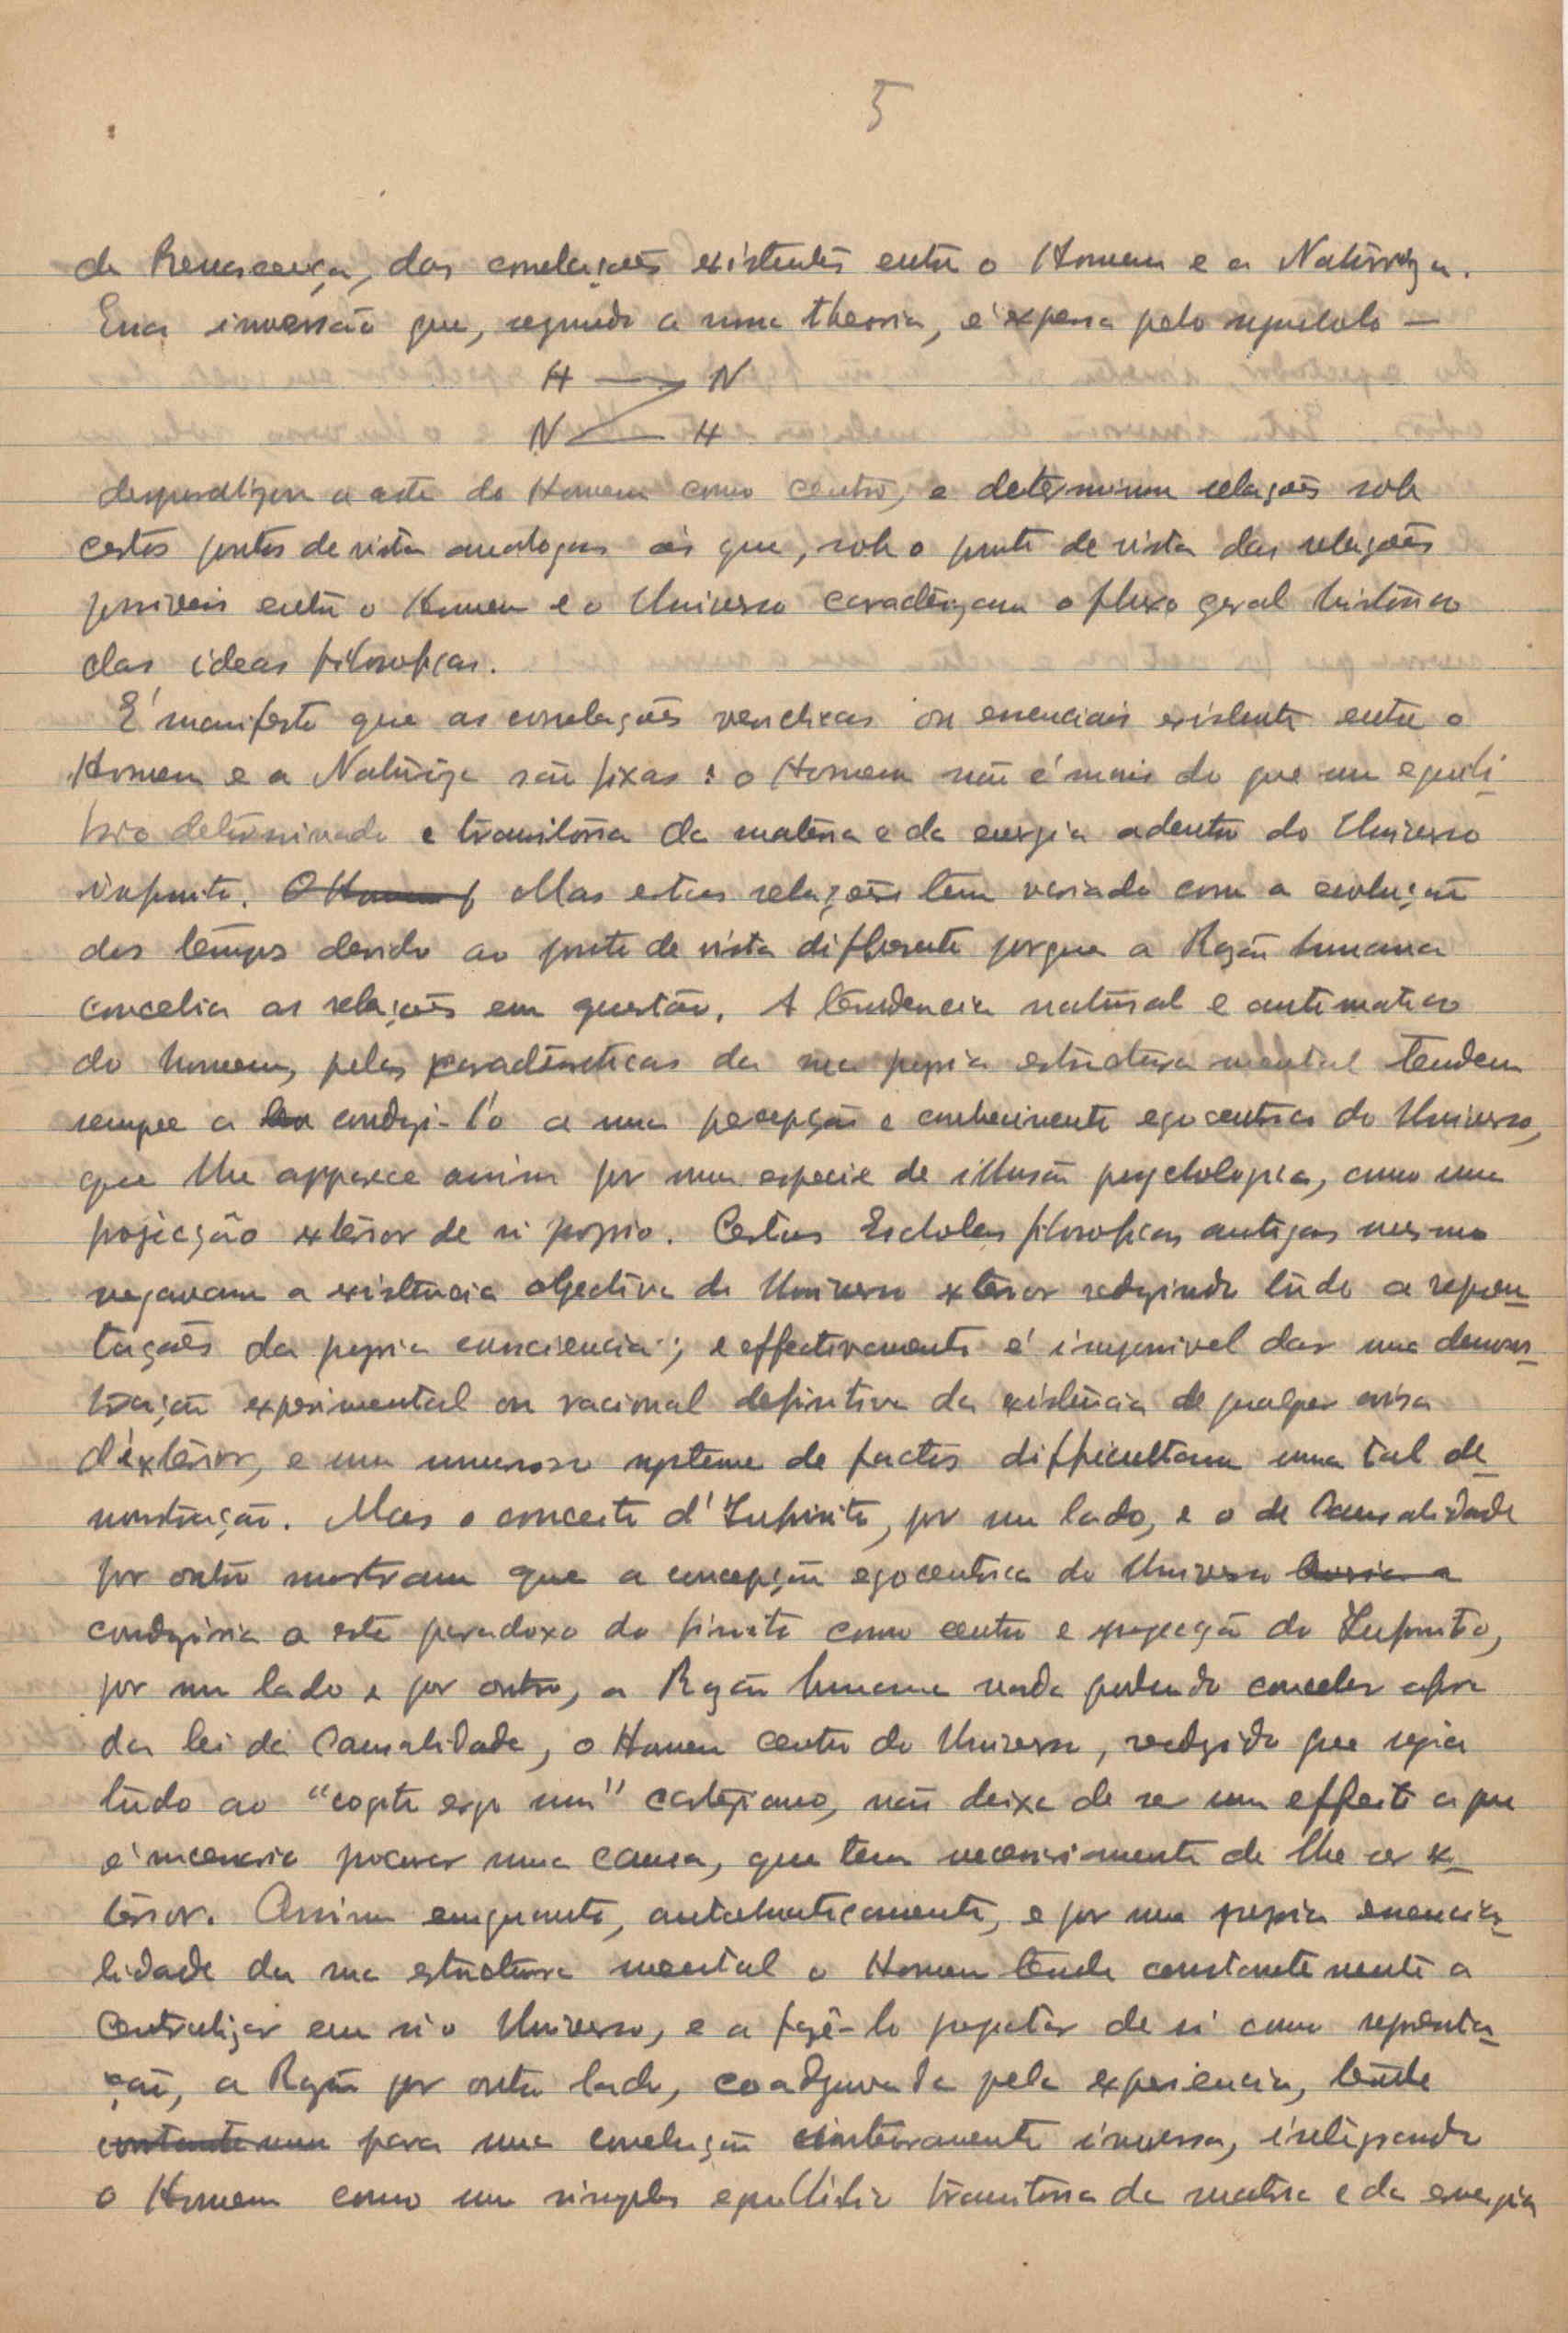 5
da Renascença, das correlações existentes entre o Homem e a Natureza.
Essa inversão que, segundo a minha theoria, é expressa pelo symbolo —
H → N
N ← H
a arte do Homem como centro, e determinou relações sob
certos pontos de vista analogas ás que, sob o ponto de vista das relações
possiveis entre o Homem e o Universo caracterizam o fluxo geral historico
das ideas filosoficas.
É manifesto que as correlações veridicas ou essenciais existente entre o
Homem e a Natureza são fixas: o Homem não é mais do que um equili-
brio determinado e transitorio da materia e da energia adentro do Universo
infinito. O Homem Mas estas relações têm variado com a evolução
dos tempos devido ao ponto de vista differente porque a Razão humana
concebia as relações em questão. A tendencia natural e automatica
do homem, pelas caracteristicas da sua propria estructura mental tendem
sempre a conduzi-l'o a uma percepção e conhecimento egocentrico do Universo,
que lhe apparece assim por uma especie de illusão psychologica, como uma
projecção exterior de si proprio. Certas Escholas filosoficas antigas mesmo
negavam a existencia objectiva do Universo exterior reduzindo tudo a represen-
tações da propria consciencia; e effectivamente é impossivel dar uma demons-
tração experimental ou racional definitiva da existencia de qualquer coisa
d'exterior, e um numeroso systema de factos difficultam uma tal de-
monstração. Mas o conceito d'Infinito, por um lado, e o de Causalidade
por outro mostram que a concepção egocentrica do Universo levaria a
conduziria a este paradoxo do finito como centro e projecção do Infinito,
por um lado e por outro, a Razão humana nada podendo conceber fora
da lei da Causalidade, o Homem centro do Universo, reduzido que seja
tudo ao "cogito ergo sum" cartesiano, não deixa de ser um effeito a que
é necessario procurar uma causa, que tem necessariamente de lhe ser ex-
terior. Assim emquanto, automaticamente, e por uma propria essencia-
lidade da sua estructura mental o Homem tende constantemente a
centralizar em si o Universo, e a fazê-lo projectar de si como representa-
ção, a Razão por outro lado, coadjuvada pela experiencia, tende
constantemen para uma conclusão inteiramente inversa, integrando
o Homem como um simples equilibrio transitorio da materia e da energia